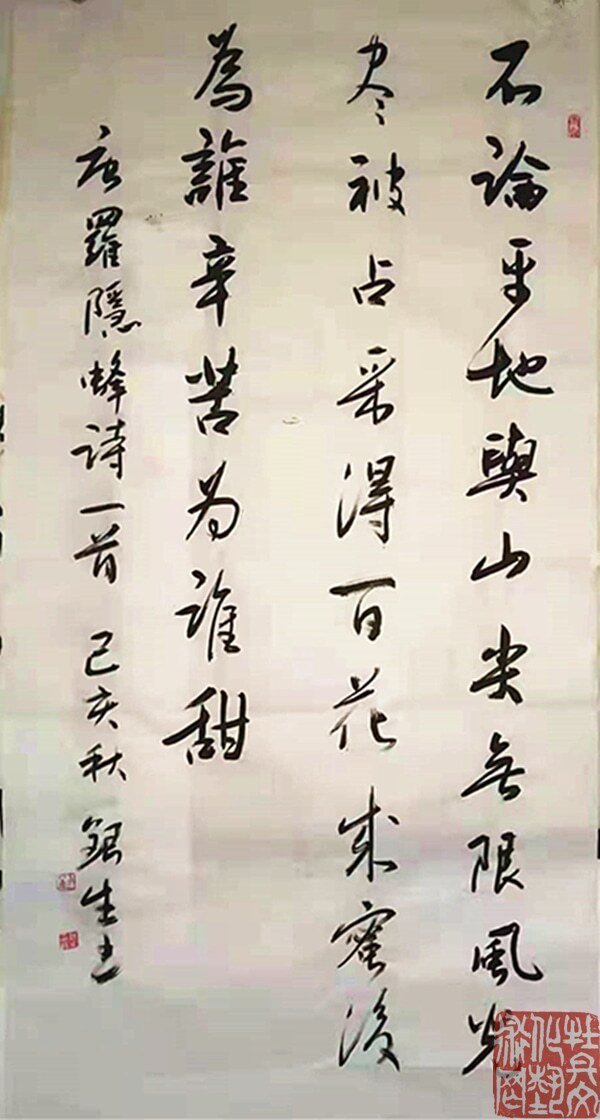 不論平地與山尖無限風光
尽被占采得百花成蜜後
為誰辛苦为谁甜
唐羅隱蜂詩一首 己亥秋 銀生书